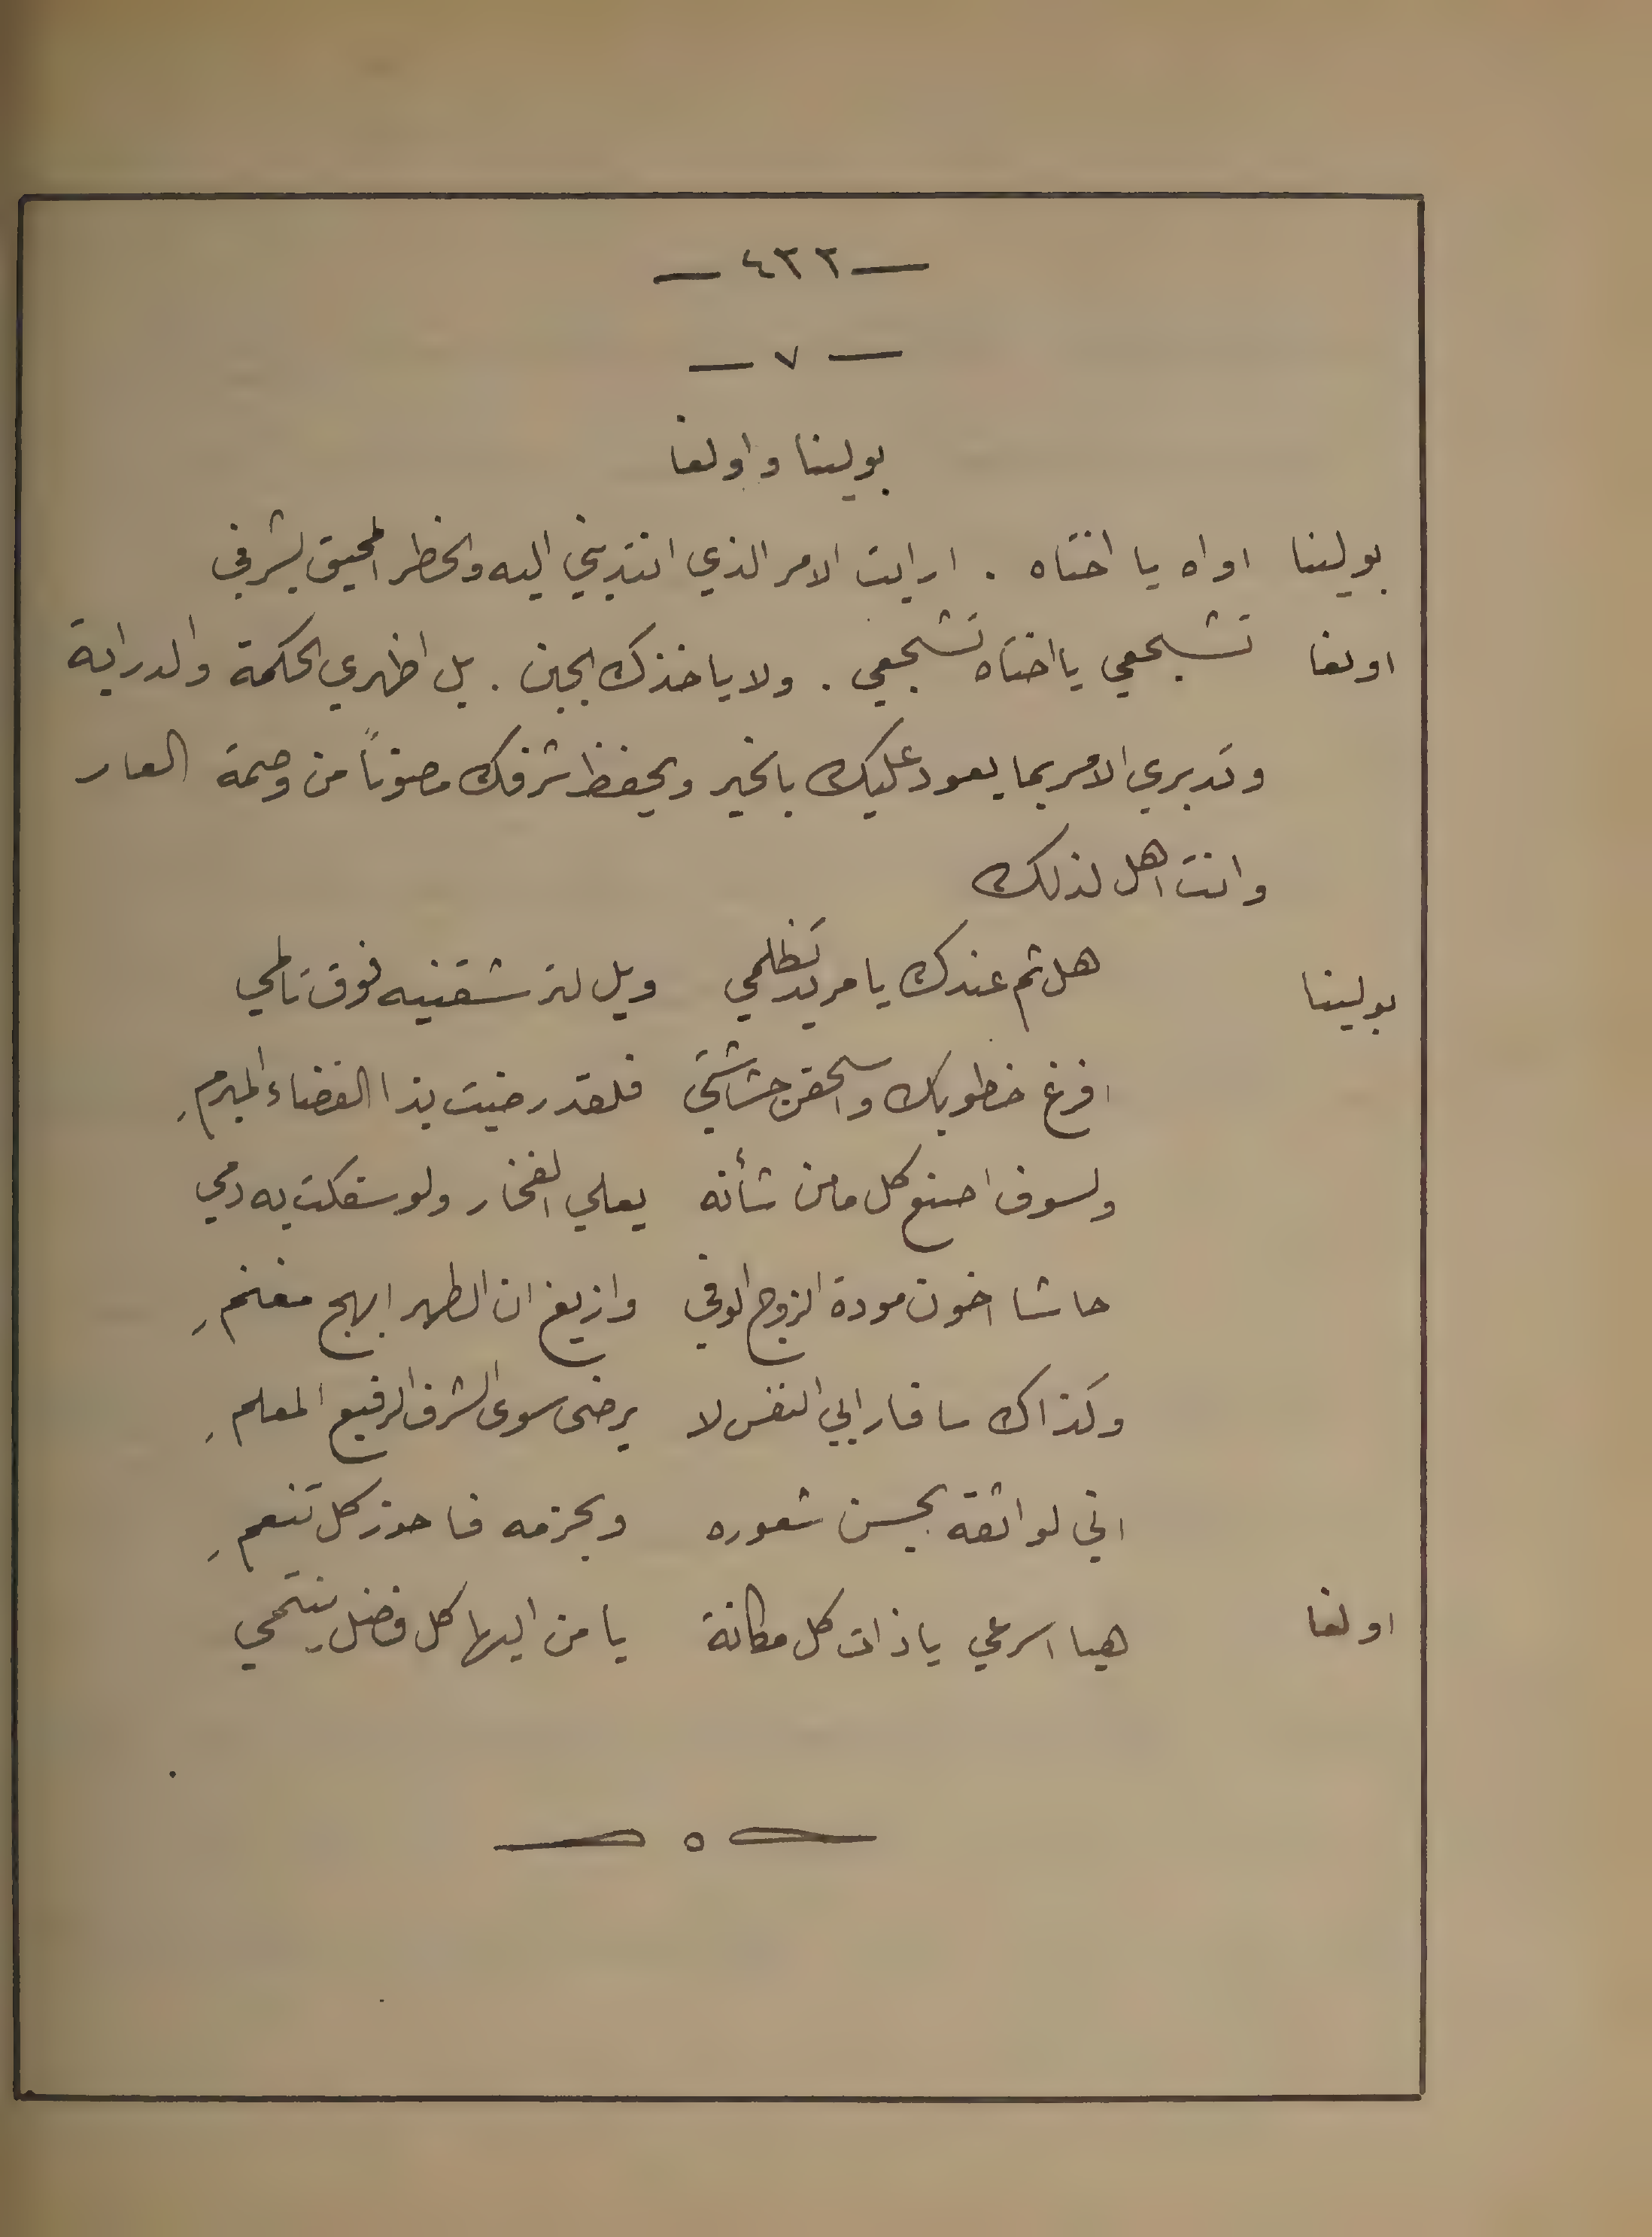 — ٤٣٣ —
— ٧ —
بولينا واولغا
بولينا اواه يا اختاه . ارايت الامر الذي انتدبني اليه والخطر المحيق بشرفي
اولغا تشجعي يا اختاه تشجعي . ولا ياخذك الجبن . بل اظهري الحكمة والدراية
وتدبري الامر بما يعود عليك بالخير ويحفظ شرفك مصوناً من وصمة العار
وانت اهل لذلك
بولينا هل ثم عندك يا مريد تظلمي ويل لترشقنيه فوق تألمي
افرغ خطوبك واسحقن حشاشتي فلقد رضيت بذا القضاء المبرمِ
ولسوف اصنع كل ما من شأنه يعلي الفخار ولو سفكت به دمي
حاشا اخون مودة الزوج الوفي وازيغ ان الطهر ابهج مغنمِ
وكذاك سافار ابي النفس لا يرضى سوى الشرف الرفيع المعلمِ
اني لواثقة بحسن شعوره وبحزمه فاحوز كل تنعمِ
اولغا هيا اسرعي يا ذات كل مكانة يا من اليها كل فضل ينتمي